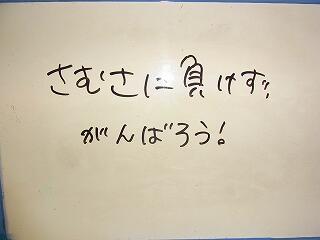 さむさに負けず、
がんばろう!